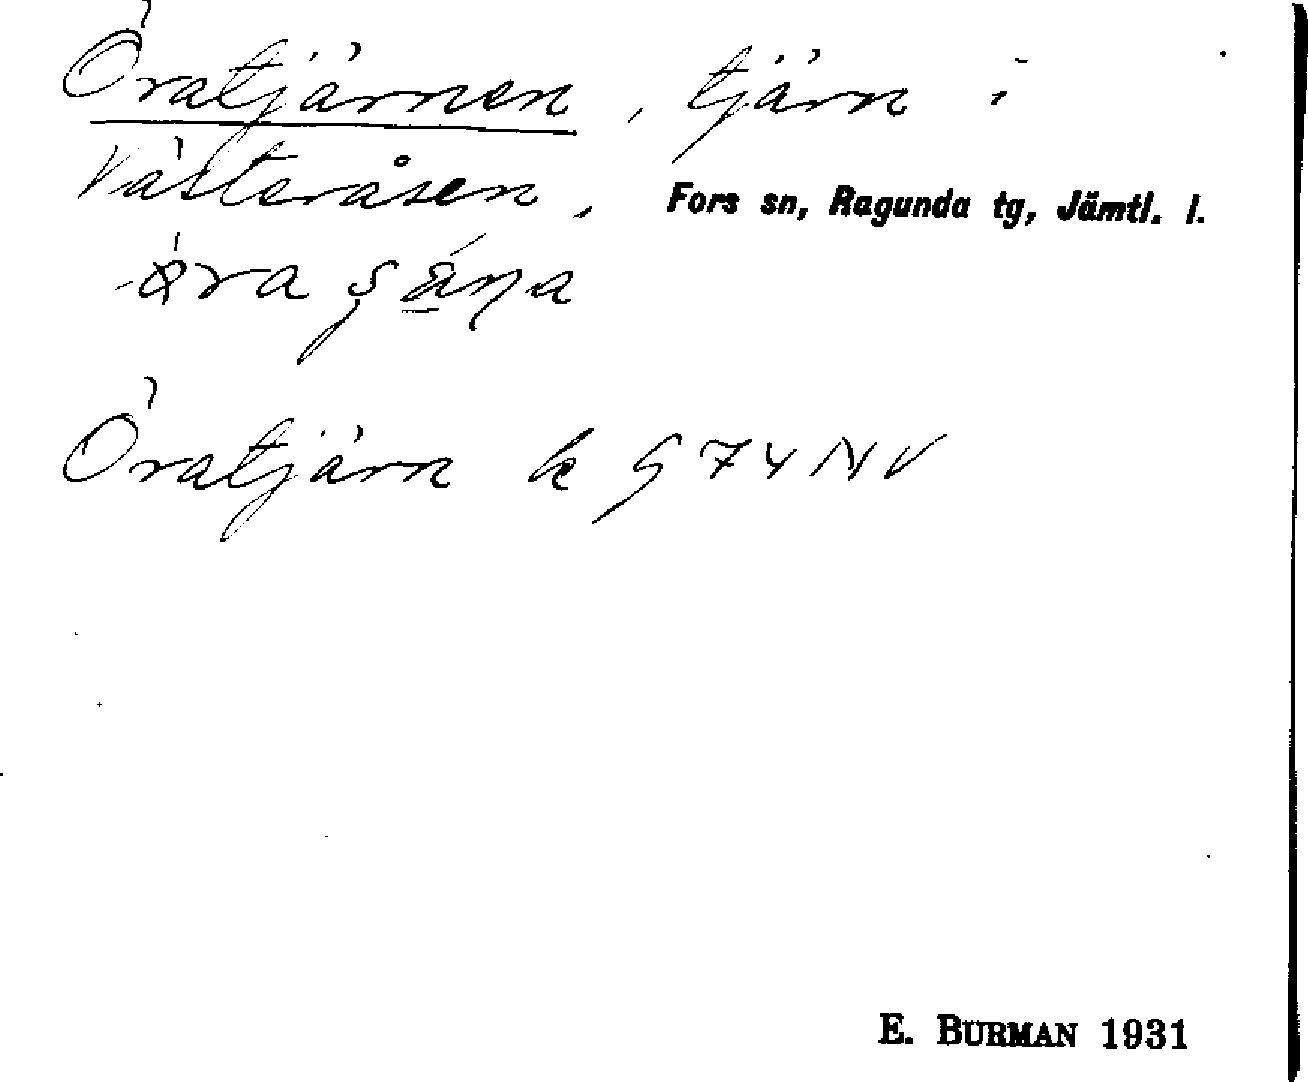 Öratjärnen, tjärn i
Västeråsen, Fors sn, Ragunda tg, Jämtl. l.
Öratjärn k § 74 NV
E. BURMAN 1931